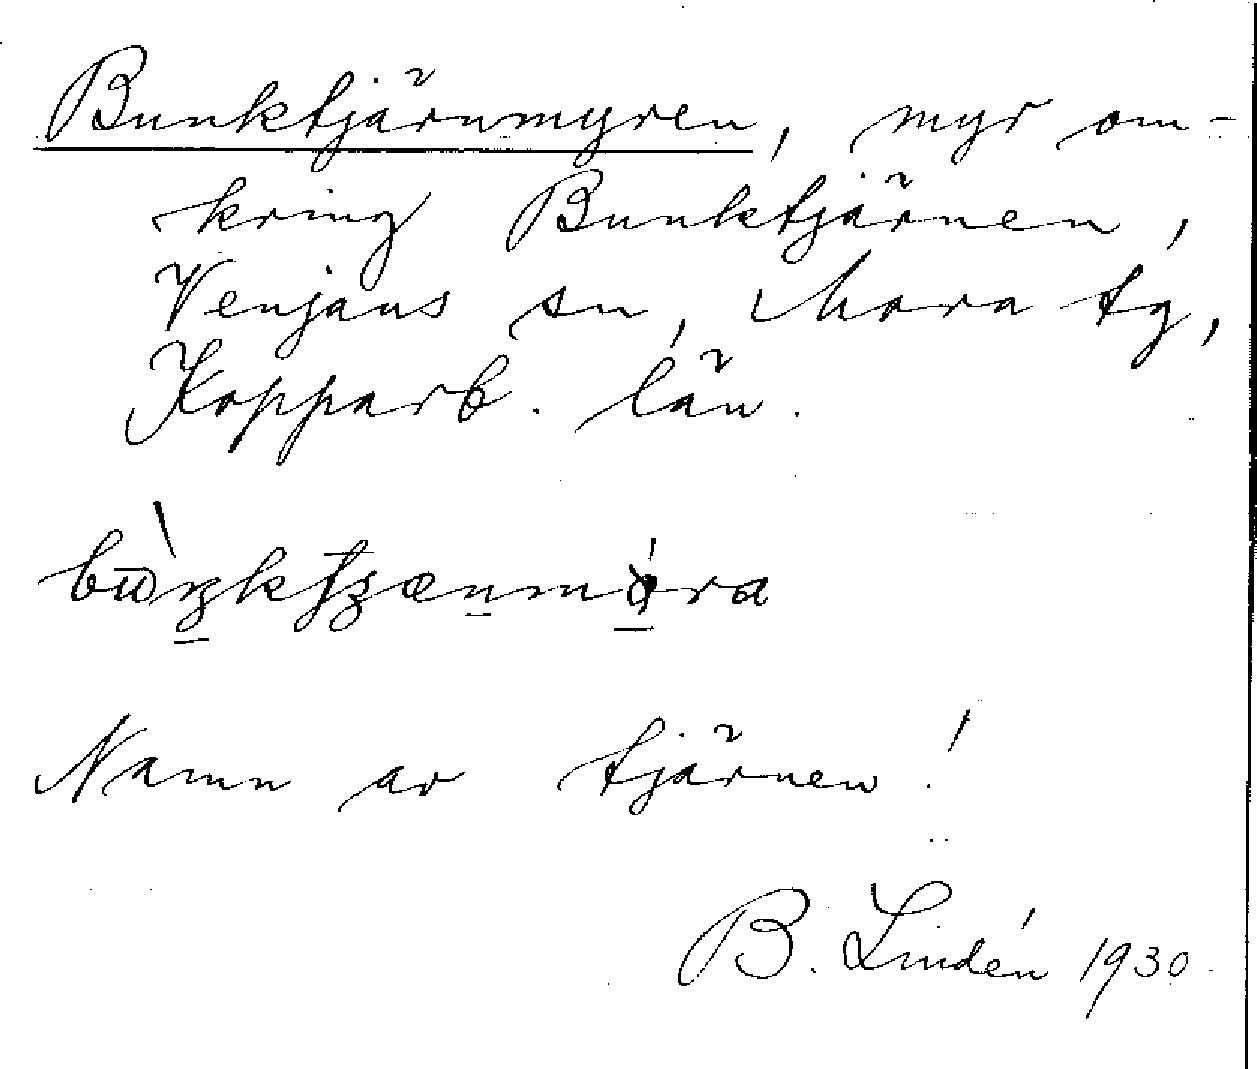 Bunktjärnmyren, myr om-
kring Bunktjärnen,
Venjans sn, Mora tg,
Kopparb. län.
Namn av tjärnen!
B. Lindén 1930